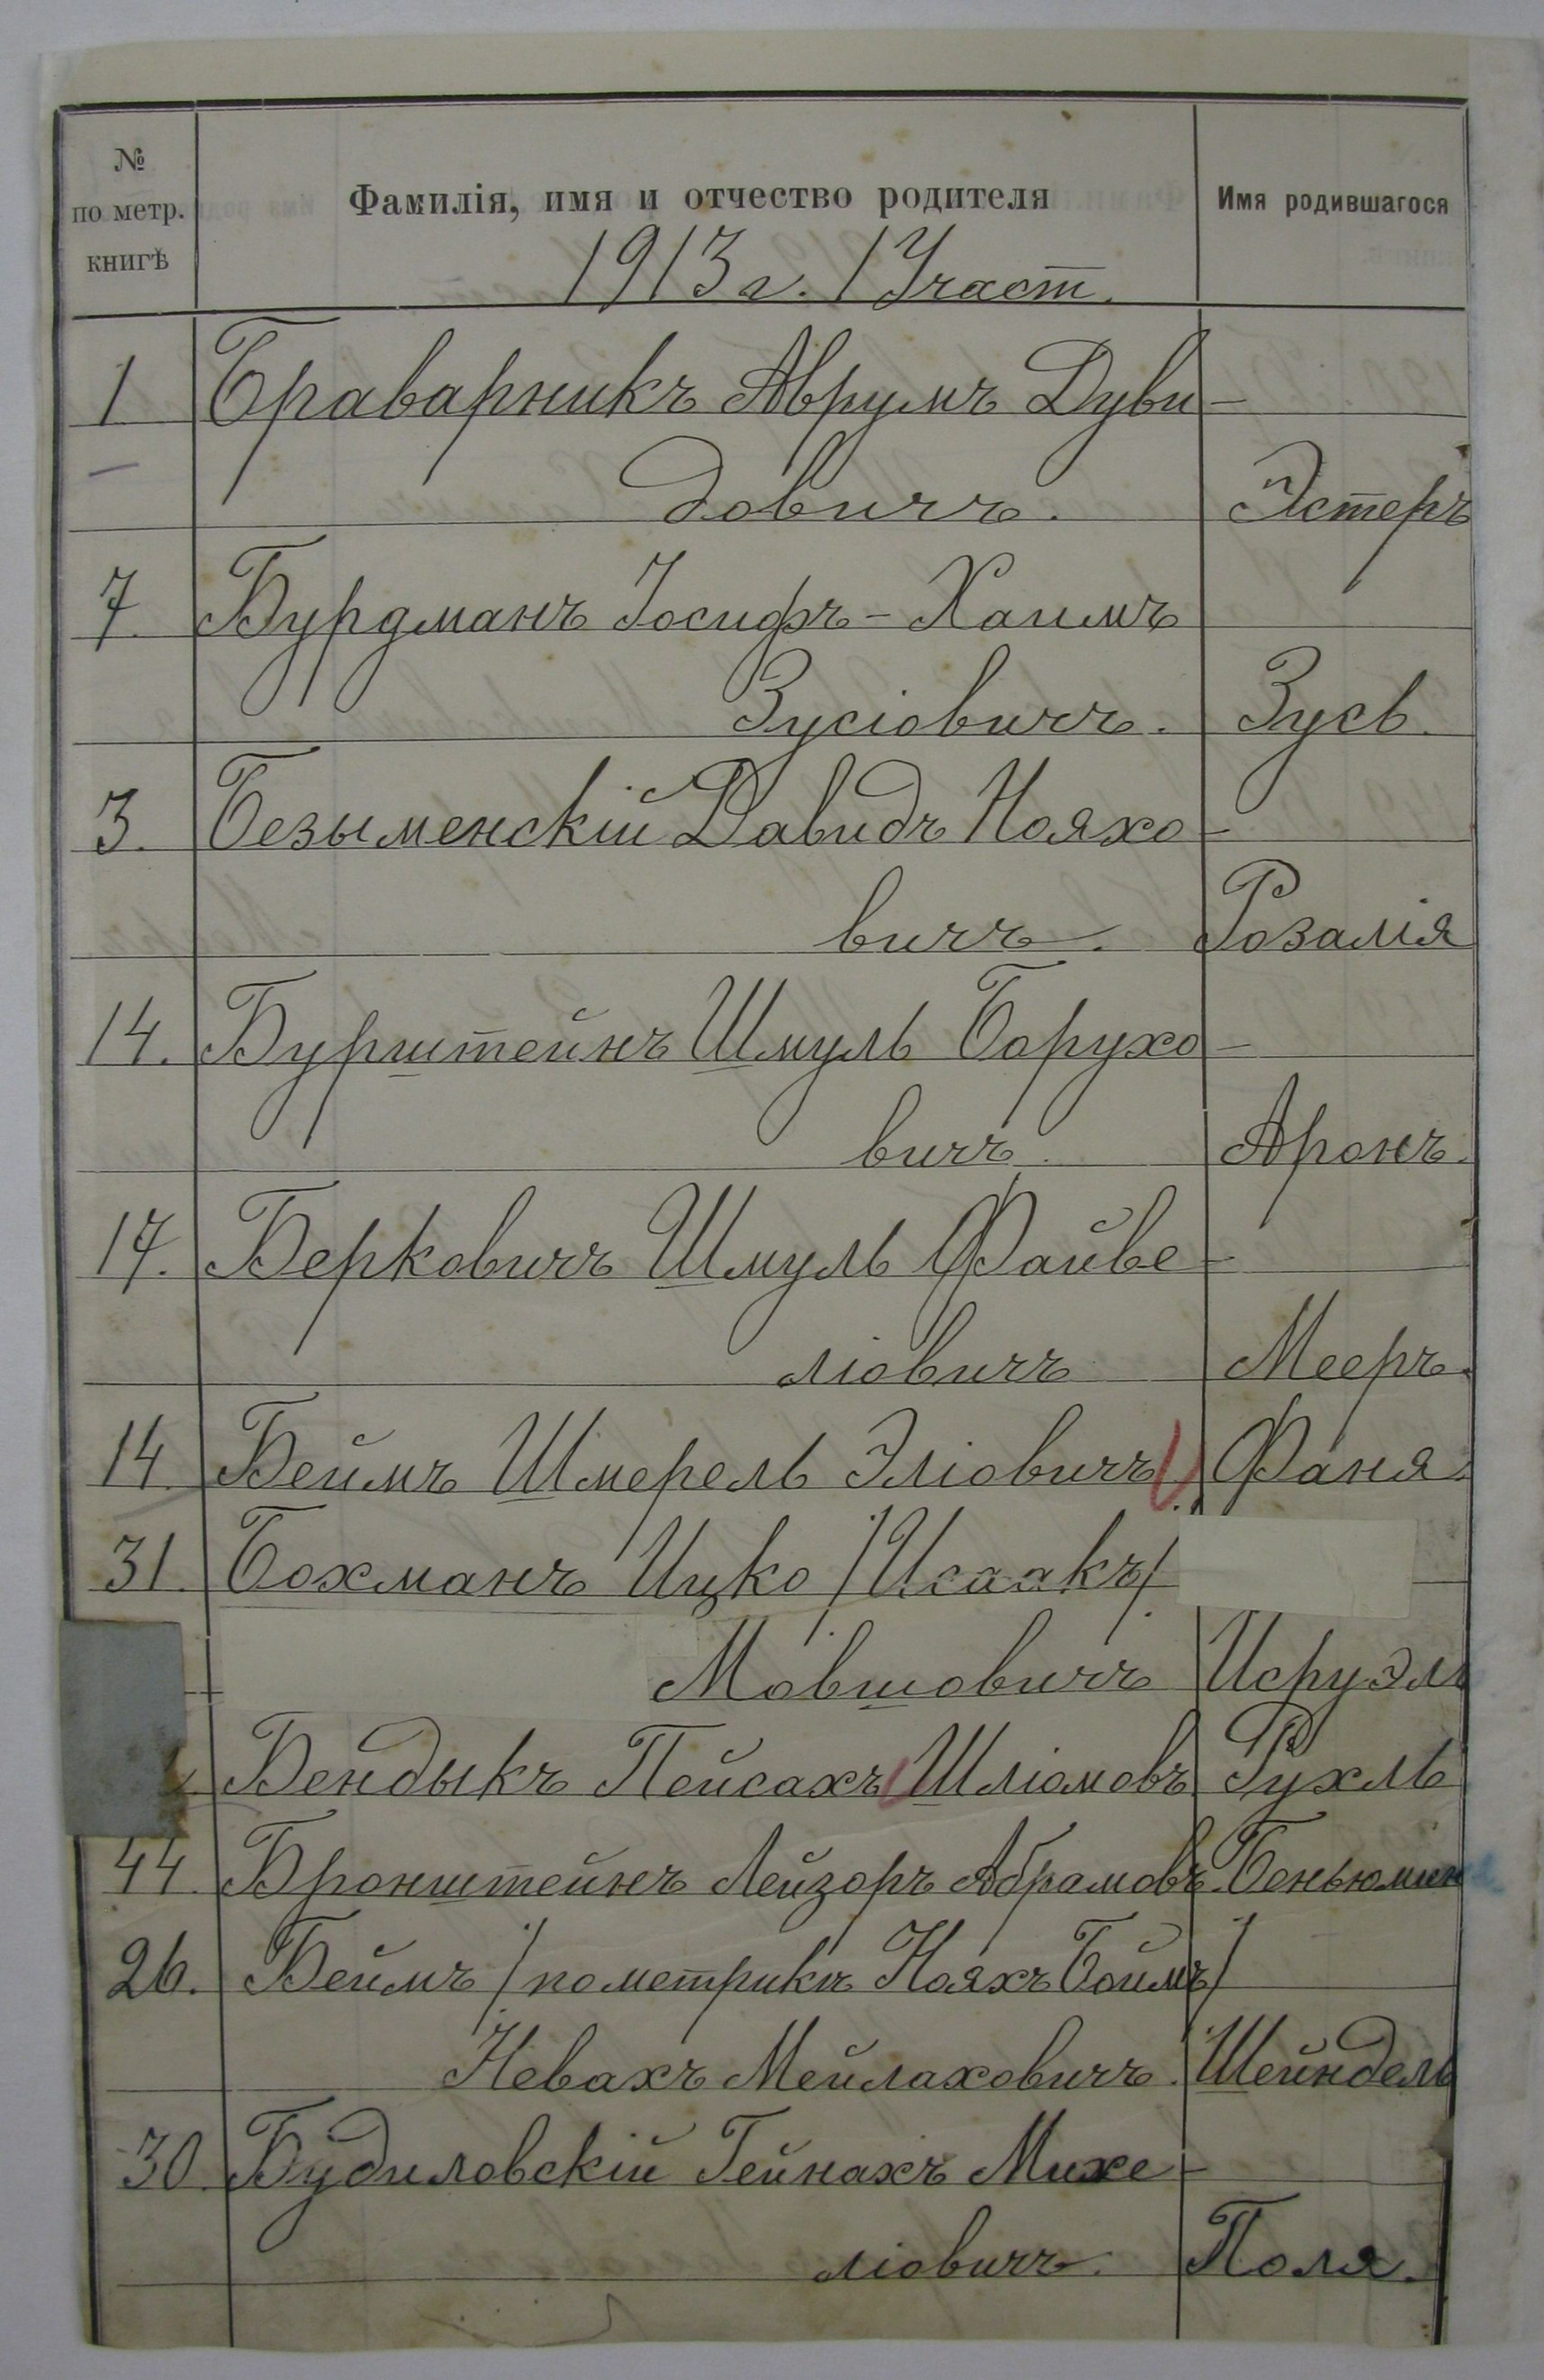 № по метр. книгѣ
Фамилія, имя и отчество родителя
Имя родившагося
1913 г. 1 Участ.
1 Браварникъ Аврумъ Дуви-
довичъ. Эстеръ
7. Бурдманъ Іосифъ-Хаимъ
Зусіовичъ. Зусь.
3. Безыменскій Давидъ Нояхо-
вичъ. Розалія
14. Бурштейнъ Шмуль Борухо-
вичъ. Аронъ.
17. Берковичъ Шмуль Файве-
ліовичъ Мееръ.
14 Беймъ Шмерель Эліовичъ Фаня.
31. Бохманъ Ицко /Исаакъ/
Мовшовичъ Исруэль
Бендыкъ Пейсахъ Шліомовъ Рухль
44 Бронштейнъ Лейзоръ Абрамовъ. Беньюмин
26. Беймъ /по метрикѣ Нояхъ Боймъ/
Невахъ Мейлаховичъ. Шейндель
30. Будиловскій Гейнахъ Михе-
ліовичъ. Поля.